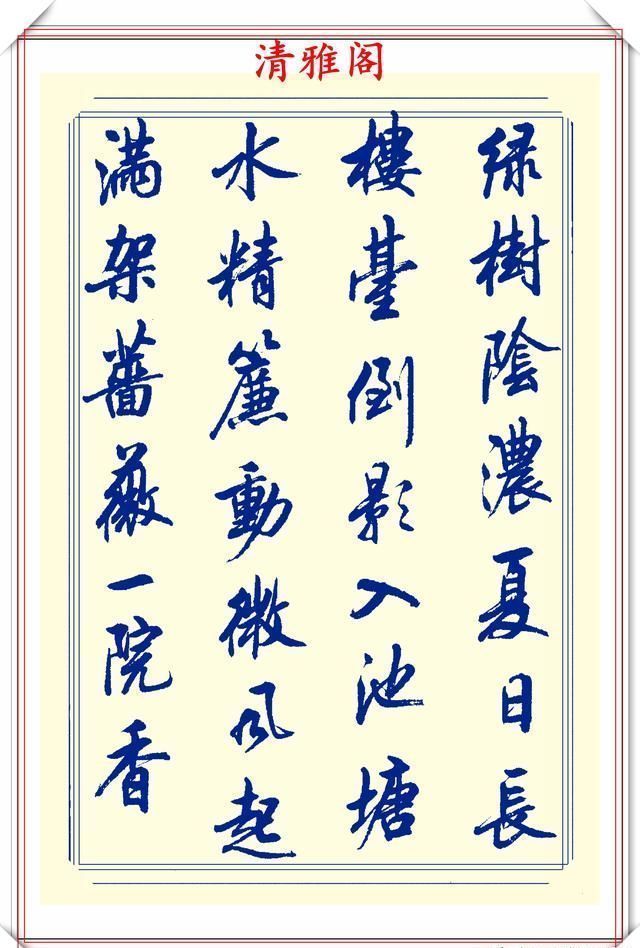 清雅阁
绿樹陰濃夏日長
樓臺倒影入池塘
水精簾動微風起
滿架薔薇一院香